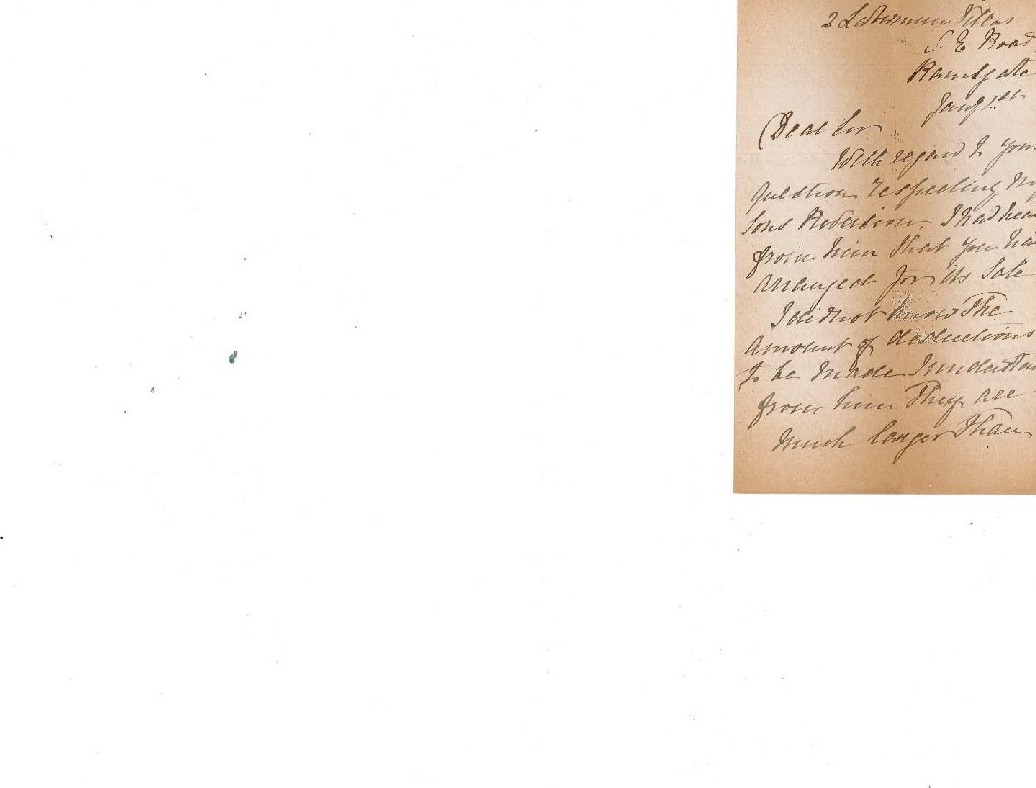 2 Villas
S. E. Road
Ramsgate
Dear Sir
With regard to your
question respecting my
sons I had
from him that you
arranged for its sale
I did not know the
amount of deductions
to be made I
from him they are
much larger than